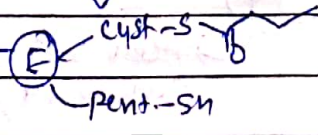 cyst-s
E
O
pent.-SH